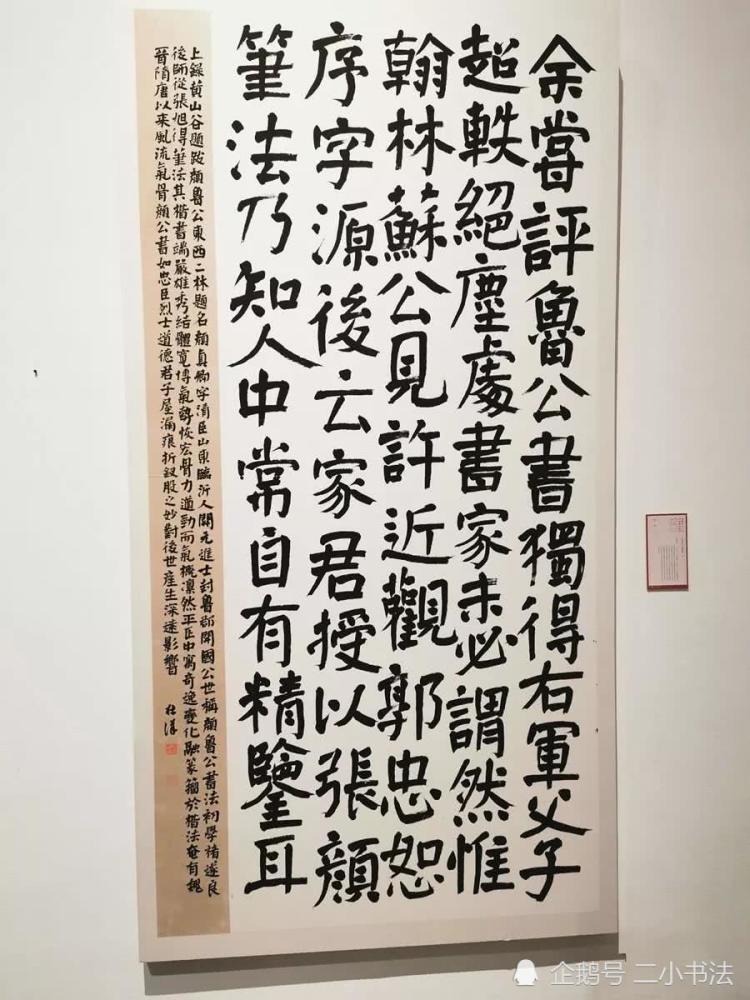 余嘗評魯公書獨得右軍父子
超軼絕塵處書家未必謂然惟
翰林蘇公見許近觀郭忠恕
序字源後云家君授以張顏
筆法乃知人中常自有精鑒耳
上錄黃山谷題跋顏魯公東西二林題名顏真卿字清臣山東臨沂人開元進士封魯郡開國公世稱顏魯公書法初學褚遂良
後師從張旭得筆法其楷書端嚴雄秀結體寬博氣勢恢宏骨力遒勁而氣概凜然平正中寓奇逸變化融篆籀於楷法奄有魏
晉隋唐以來風流氣骨顏公書如忠臣烈士道德君子屋漏痕折釵股之妙對後世產生深遠影響
企鹅号 二小书法